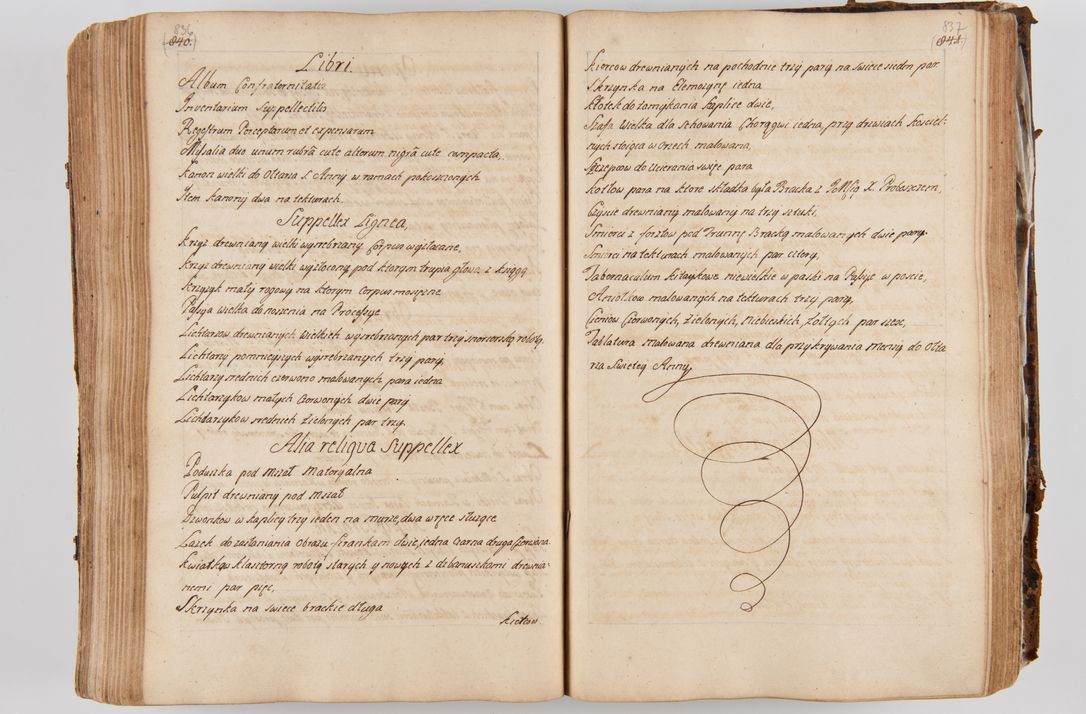 836
(840.)
Libri
Album Confraternitatis
Inventarium Suppellectilis
Regestrum Perceptarum et expensarum
Missalia duo unum rubrâ cute alterum nigrâ cute compacta,
Kanon wielki do Ołtarza S. Anny w ramach pokoszzonych
Item kanony dwa na tekturach
Suppellex Lignea,
Krzyż drewniany wielki wysrebrzany Corpus wyzłacane,
Krzyż drewniany wielki wyzłocony pod ktorym trupia głowa z księgą
Krzyżyk mały rogowy na ktorym Corpus mosiężne
Passya wielka do noszenia na Processye
Lichtarzow drewnianych wielkich wysrebrzanych par trzy snycerską robotą,
Lichtarzy pomnieyszych wysrebrzanych trzy pary,
Lichtarzy srednich czerwono malowanych para iedna
Lichtarzykow małych Czerwonych dwie pary
Lichtarzykow srednich Zielonych par trzy.
Alia reliqua Suppellex
Poduszka pod Mszał Materyalna
Pulpit drewniany pod Mszał
Dzwonkow w kaplicy trzy ieden na murze, dwa w ręce służące
Lasek do zasłaniania Obrazu firankam dwie, jedna Czarna druga Czerwona
Kwiatkow Klasztorną robotą starych y nowych z dzbanuszkami drewnia-
nemi par pięc,
Skrzynka na swiece brackie długa
837
(841.)
Kiercow drewnianych na pochodnie trzy pary na swiece siedm par
Skrzynka na Elemozynę iedna
Kłotek do zamykania kaplice dwie,
Szafa Wielka dla schowania Chorągwi iedna, przy drzwiach Kosciel-
nych stoiąca w Orzech malowana,
Szczypcow do Ucierania swiec para
Kotłow para na ktore składka była Bracka z X. Proboszczem,
Czyscie drewniany malowany na trzy sztuki,
Smierci z forsztow pod Trunnę Bracką malowanych dwie pary.
Smierci na tekturach malowanych par cztery,
Tabernaculum kitaykowe niewielkie w paski na Passye w poscie,
Aniołkow malowanych na tekturach trzy pary,
Cieniow Czerwonych, Zielonych, Niebieskich, Zołtych par szesc,
Tablatura malowana drewniana dla przykrywania Mensy do Ołta
rza Swietey Anny